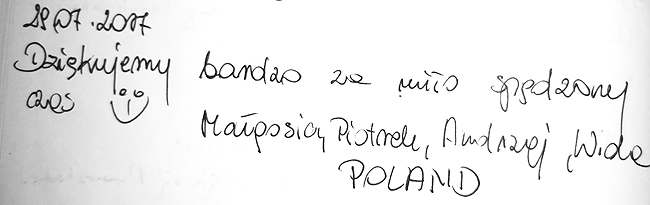 29.07.2017
Dziękujemy bardzo za miło spędzony
czas
Małgosia, Piotrek, Andrzej, Wida
POLAND